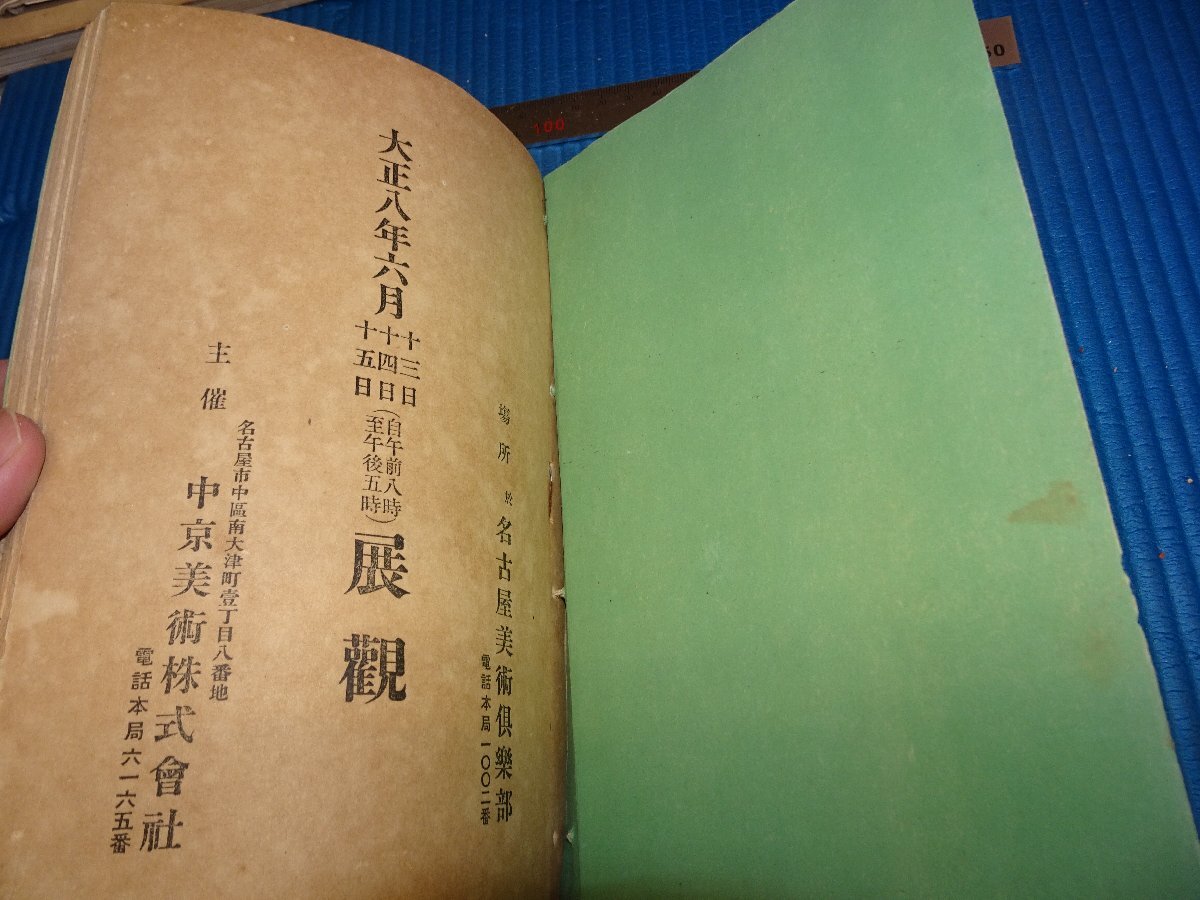 場所 於 名古屋美術俱樂部
電話本局一〇〇二番
大正八年六月
十三日
十四日
十五日
(自午前八時
至午後五時)
展觀
主催
名古屋市中區南大津町壹丁目八番地
中京美術株式會社
電話本局六一六五番
100
50